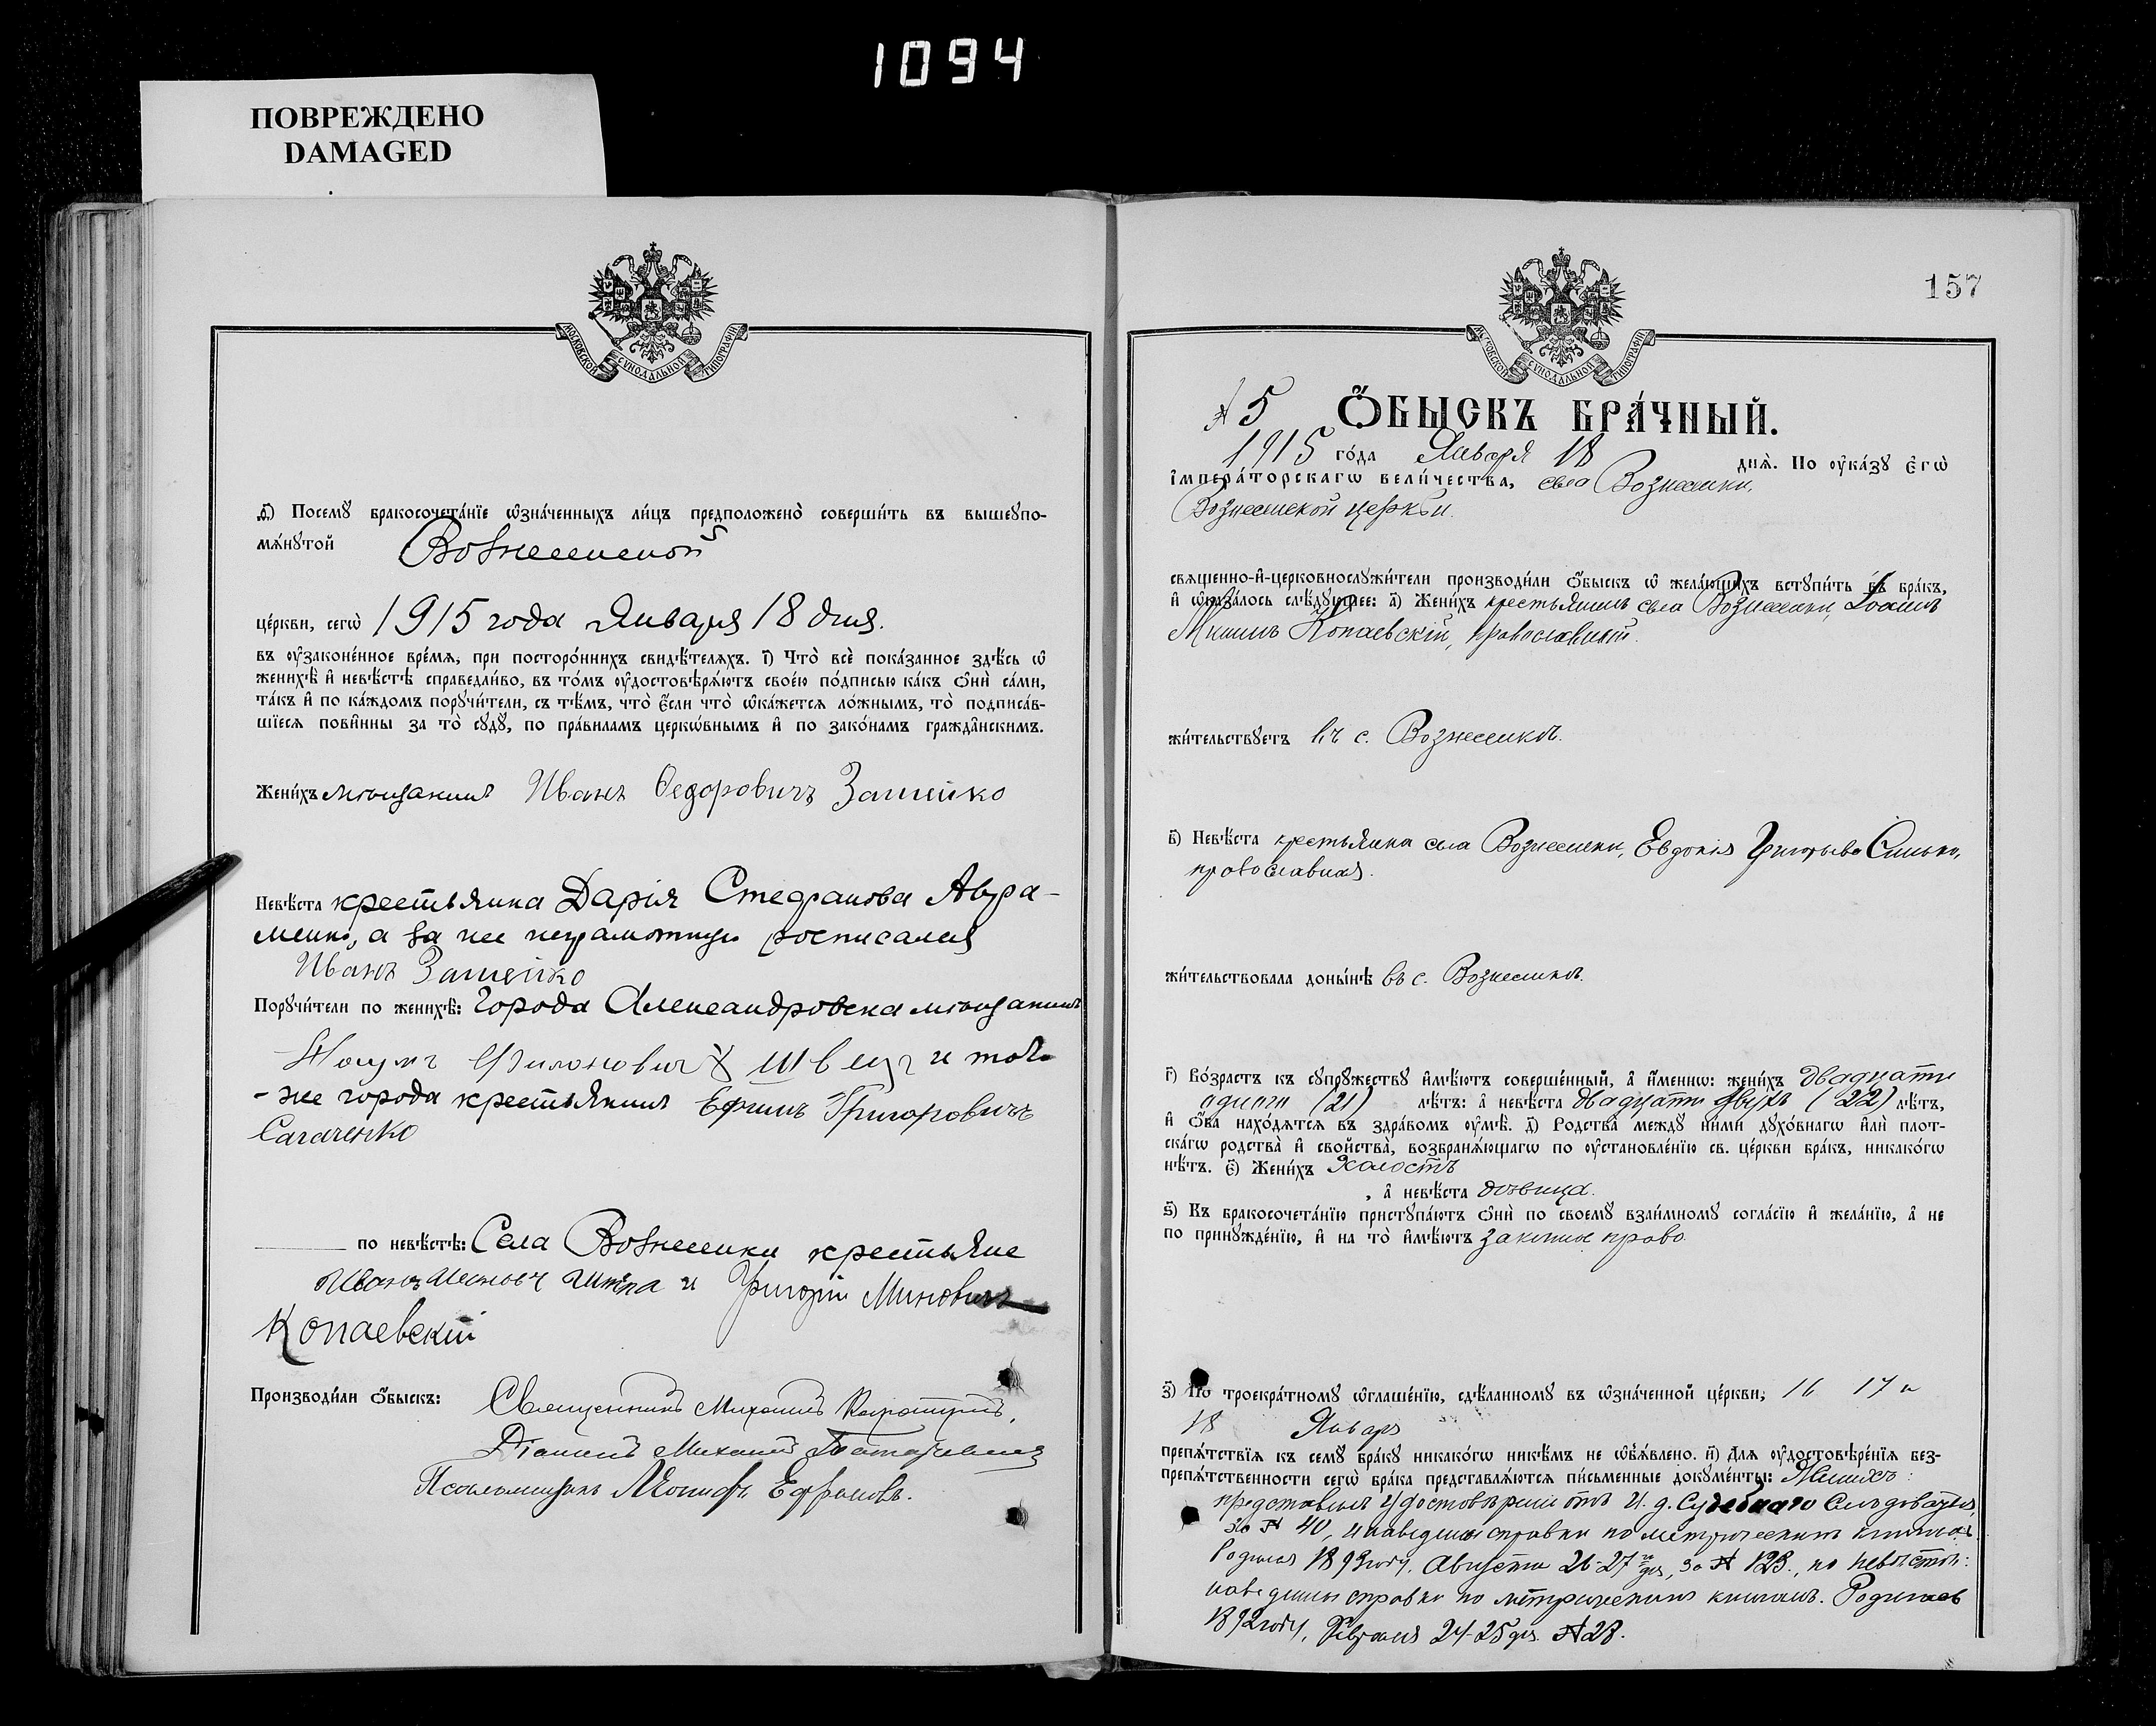 1094
ПОВРЕЖДЕНО
DAMAGED
МОСКОВСКОЙ СѴНОДАЛЬНОЙ ТИПОГРАФІИ
д҃і) Посемꙋ̀ бракосочета́нїе ѡ҆зна́ченныхъ ли́цъ предположено̀ соверши́ть въ вышеꙋпо-
мѧ́нꙋтой Вознесенской
це́ркви, сегѡ̀ 1915 года Января 18 дня.
въ ᲂу҆законе́нное вре́мѧ, при посторо́ннихъ свидѣ́телѧхъ. і҃) Что̀ всѐ пока́занное здѣ́сь ѡ҆
женихѣ̀ и҆ невѣ́стѣ справедли́во, въ то́мъ ᲂу҆достовѣрѧ́ютъ свое́ю по́дписью ка́къ ѻ҆нѝ са́ми,
та́къ и҆ по ка́ждомъ порꙋчи́тели, съ тѣ́мъ, что̀ є҆́сли что̀ ѡ҆ка́жетсѧ ло́жнымъ, то̀ подписа́в-
шїесѧ пови́нны за то̀ сꙋдꙋ̀, по пра́виламъ церкѡ́внымъ и҆ по зако́намъ гражда̂нскимъ.
Жени́хъ мѣщанинъ Иванъ Ѳедоровичъ Зашейко
Невѣ́ста крестьянка Дарія Стефанова Авра-
менко, а за нее неграмотную росписался
Иванъ Зашейко
Порꙋчи́тели по женихѣ̀: Города Александровска мѣщанинъ
Наумъ Филоновичъ Швецъ и того
-же города крестьянинъ Ефимъ Григоровичъ
Сагаченко
по невѣ́стѣ: Села Вознесенки крестьяне
Иванъ и Григорій Миновичъ
Копаевскій
Производи́ли ѻ҆́быскъ: Священникъ Михаилъ
Діаконъ Михаилъ
Псаломщикъ Ефремовъ.
157
МОСКОВСКОЙ СѴНОДАЛЬНОЙ ТИПОГРАФІИ
№ 5 Ѻ҆́БЫСКЪ БРА́ЧНЫЙ.
1915 го́да Января 18 днѧ̀. По ᲂу҆ка́зꙋ є҆гѡ̀
і҆мпера́торскагѡ вели́чества, села Вознесенки,
Вознесенской церкви.
свѧщенно-и҆-церковнослꙋжи́тели производи́ли ѻ҆́быскъ ѡ҆ жела́ющихъ встꙋпи́ть въ бра́къ,
и҆ ѡ҆каза́лось слѣ́дꙋющее: а҃) Жени́хъ крестьянинъ села Вознесенки, Іоаннъ
Мининъ Копаевскій, православный.
жи́тельствꙋетъ въ с. Вознесенкѣ.
в҃) Невѣ́ста крестьянка села Вознесенки, Евдокія Григорьева Синько,
православная.
жи́тельствовала доны́нѣ въ с. Вознесенкѣ.
г҃) Во́зрастъ къ сꙋпрꙋ́жествꙋ и҆мѣ́ютъ соверше́нный, а҆ и҆́меннѡ: жени́хъ двадцати
одного (21) лѣ́тъ: а҆ невѣ́ста двадцати двухъ (22) лѣ́тъ,
и҆ ѻ҆́ба нахо́дѧтсѧ въ здра́вомъ ᲂу҆мѣ̀. д҃) Родства̀ междꙋ̀ ни́ми дꙋхо́внагѡ и҆лѝ плот-
ска́гѡ родства̀ и҆ сво́йства̀, возбранѧ́ющагѡ по ᲂу҆становле́нїю св. це́ркви бра́къ, никако́гѡ
нѣ́тъ. є҃) Жени́хъ Холостъ
, а҆ невѣ́ста дѣвица.
ѕ҃) Къ бракосочета́нїю пристꙋпа́ютъ ѻ҆нѝ по своемꙋ̀ взаи́мномꙋ согла́сїю и҆ жела́нїю, а҆ не
по принꙋжде́нїю, и҆ на то̀ и҆мѣ́ютъ законное право.
з҃) По троекра́тномꙋ ѡ҆глаше́нїю, сдѣ́ланномꙋ въ ѡ҆зна́ченной це́ркви, 16 17 и
18 Января
препѧ́тствїѧ къ семꙋ̀ бра́кꙋ никако́гѡ никѣ́мъ не ѡ҆б̾ѧ́влено. и҃) Длѧ ᲂу҆достовѣре́нїѧ без-
препѧ́тственности сегѡ̀ бра́ка представлѧ́ютсѧ пи́сьменные докꙋме́нты: Женихъ:
представилъ удостовѣреніе отъ И. д. Судебнаго Слѣдователя,
за № 40, и наведены справки по метрическимъ книгамъ.
Родился 1893 году, Августа 26-27 дня, за № 123., по невѣстѣ:
наведены справки по метрическимъ книгамъ. Родилась
1892 году, Февраля 24-25 дня. № 28.